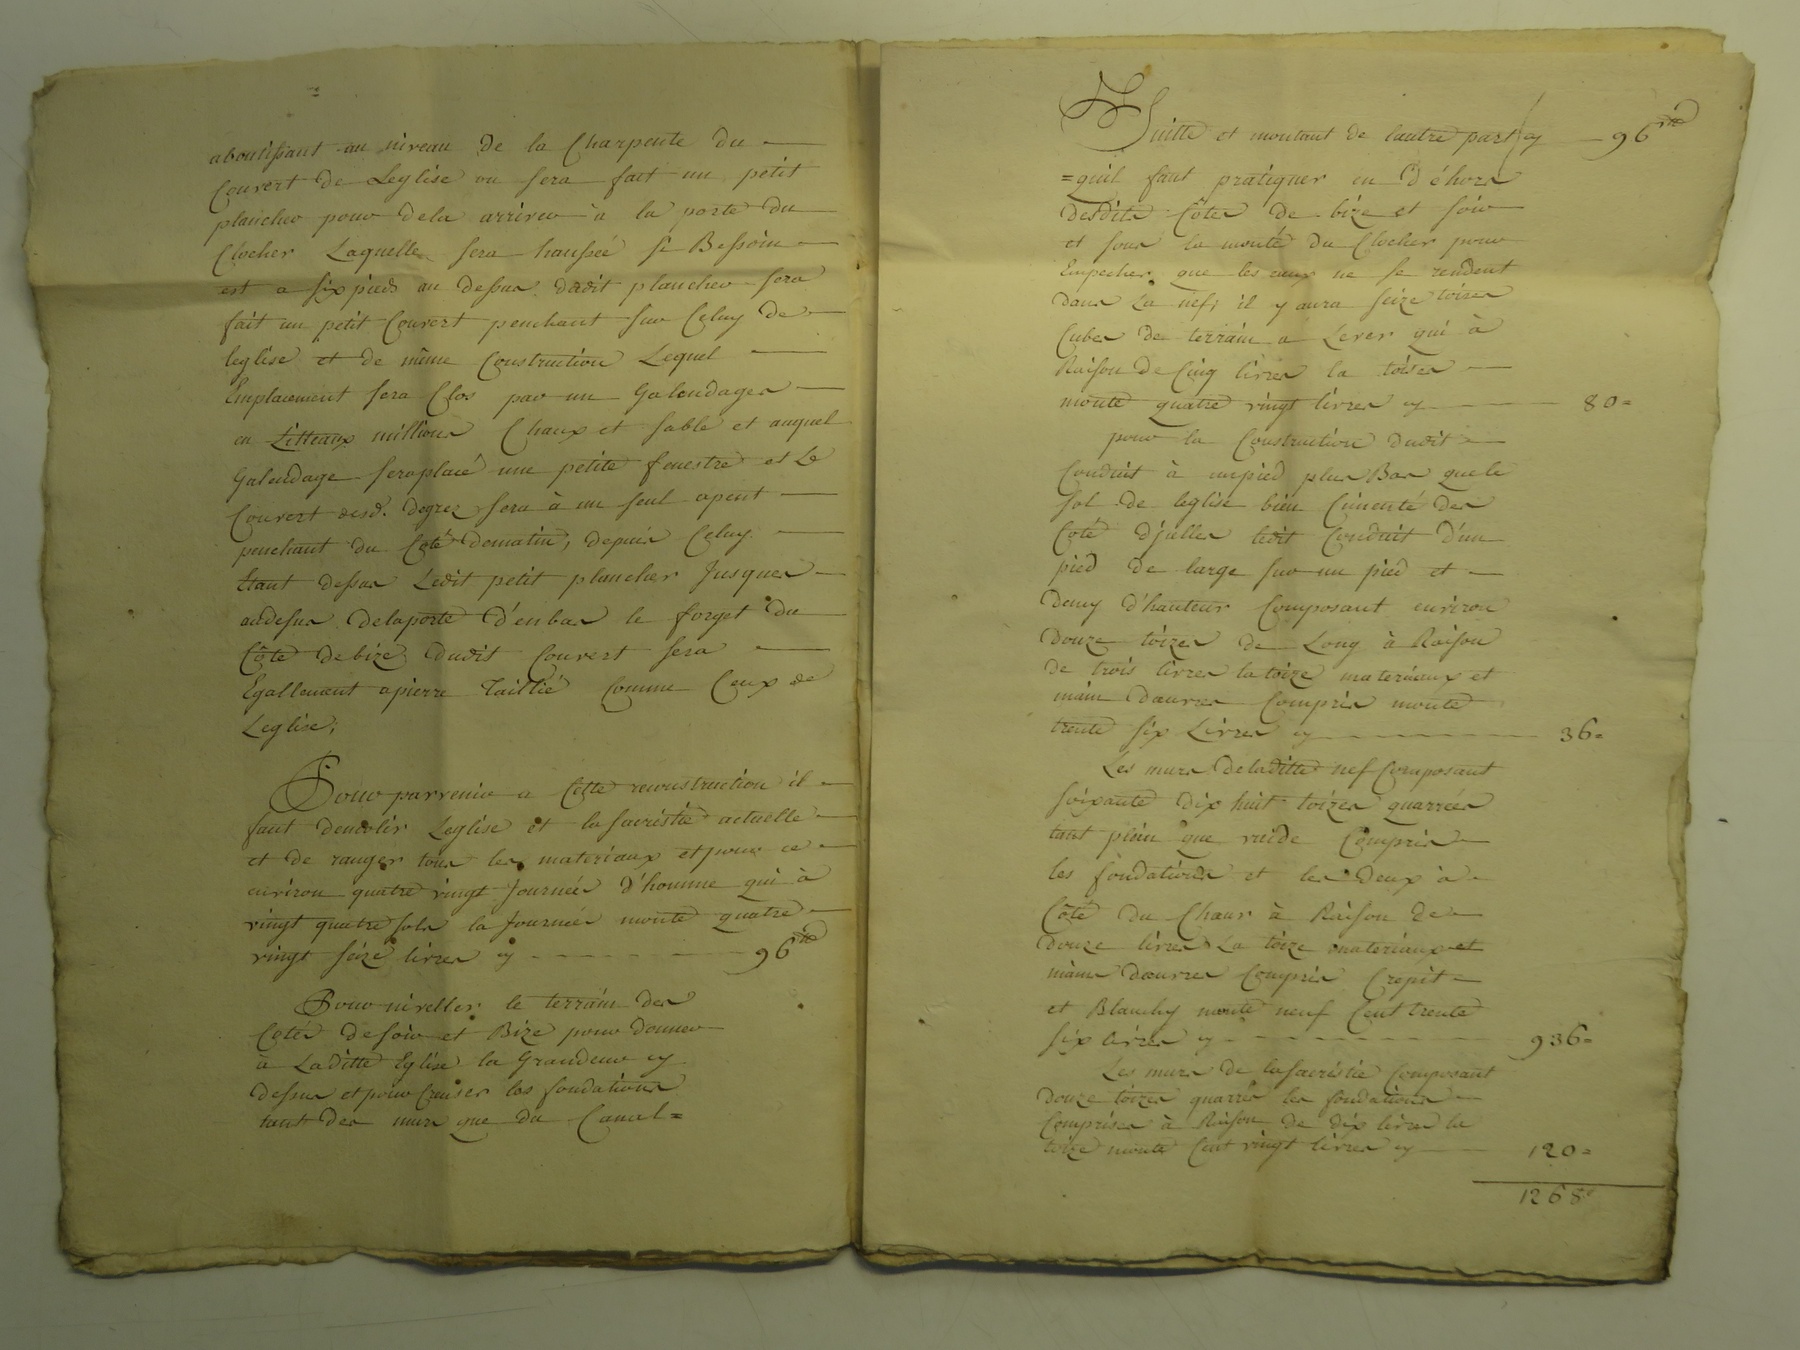 aboutissant au niveau de la Charpente du
Couvert de Leglise ou sera fait un petit
plancher pour dela arriver à la porte du
Clocher Laquelle sera haussée si Bessoin
est a six pieds au dessus dudit plancher sera
fait un petit Couvert penchant sur Celuy de
leglise et de même Construction Lequel
Emplacement sera Clos par un Galendages
en Litteaux millions Chaux et sable et auquel
Galendage seraplacé une petite fenestre et Le
Couvert desd. degrez sera à un seul apent
penchant du Coté dematin, depuis Celuy
Etant dessus Ledit petit plancher Jusques
audessus delaporte d'enbas le forget du
Côté debize dudit Couvert sera
Egallement apierre Taillié Comme Ceux de
Leglise;
Pour parvenir a Cette reconstruction il
faut demolir Leglise et la sacristie actuelle
et de ranger tous les materiaux et pour ce
environ quatre vingt Journées d'homme qui à
vingt quatre sols la Journée monte quatre
vingt seize livres cy 96tt
Pour niveller le terrain des
Cotés de soir et Bize pour donner
à Laditte Eglise la Grandeur cy
dessus et pour Creuser les fondations
tant des murs que du Canal=
Suitte et montant de lautre part cy 96tt
=quil faut pratiquer en D'éhors
desdits Côtés de bize et soir
et sous la monté du Clocher pour
Empecher que les eaux ne se rendent
dans La nef; il y aura seize toizes
Cubes de terrain a Lever qui à
Raison de Cinq livres la toises
monte quatre vingt livres cy 80=
pour la Construction dudit
Conduit à unpied plus Bas que le
sol de leglise bien Cimenté des
Coté d'jcelles ledit Conduit d'un
pied de large sur un pied et
demy d'hauteur Composant environ
douze toizes de Long à Raison
de trois livres la toize materiaux et
main d'œuvres Compris monte
trente six Livres cy 36=
Les murs deladitte nef Composant
soixante dix huit toizes quarrées
tant plein que vuide Compris
les fondations et les deux à
Côté du Chœur à Raison de
douze livres La toize materiaux et
mains dœuvres Compris Crepit
et Blanchy monte neuf Cent trente
six livres cy 936=
Les murs de lasacristie Composant
douze toizes quarrés les fondations
Comprises à Raison de dix livres la
toize monte Cent vingt livres cy 120=
1268=